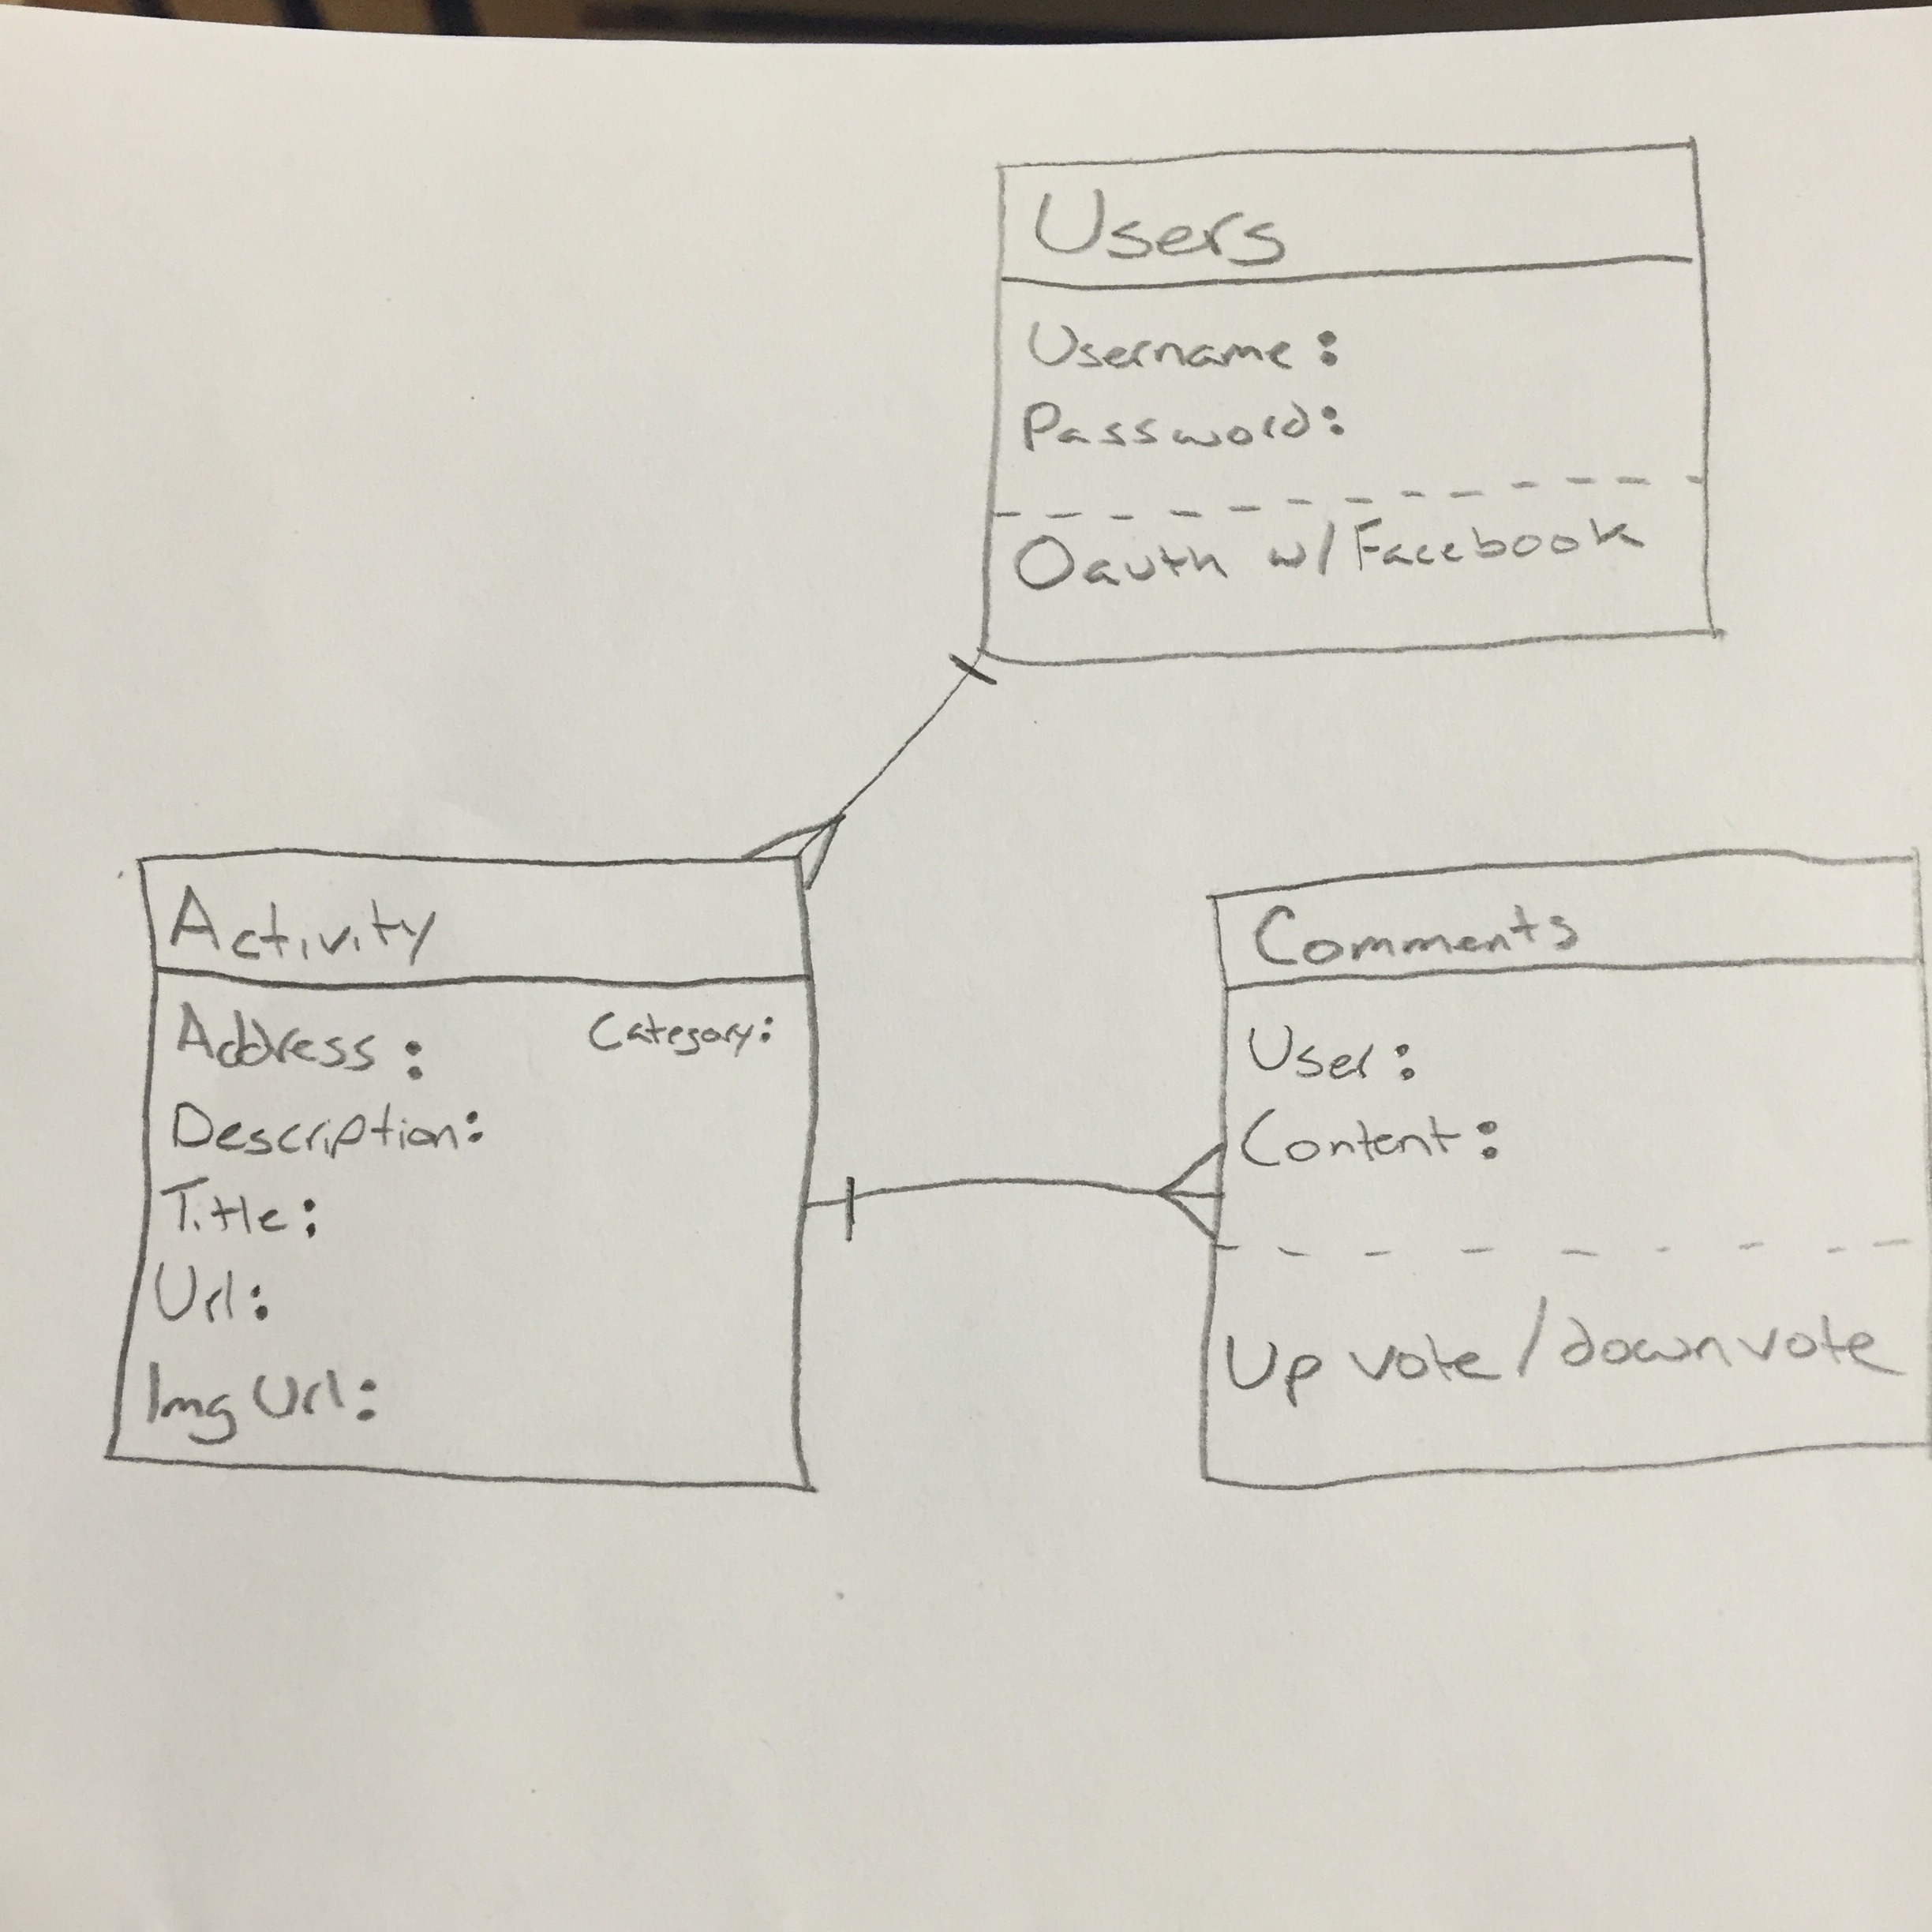 Users
Username:
Password:
Oauth w/Facebook
Activity
Address: Category:
Description:
Title:
Url:
Img Url:
Comments
User:
Content:
Up vote/downvote